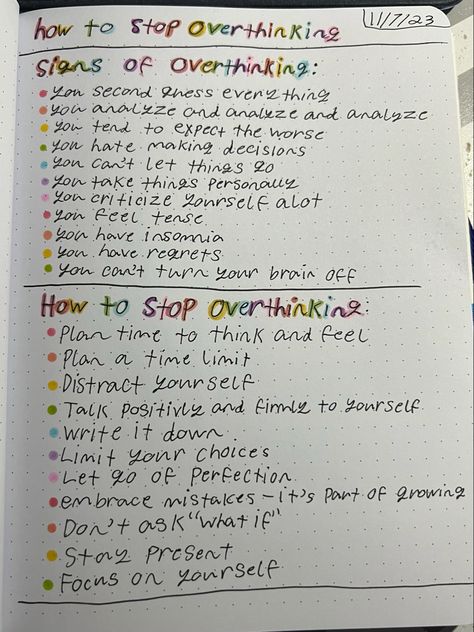 how to STOP OVERthinking
11/7/23
Signs of OVERthinking:
• You second guess every thing
• You analyze and analyze and analyze
• You tend to expect the worse
• You hate making decisions
• You can't let things go
• You take things personally
• You criticize yourself alot
• You feel tense
• You have insomnia
• You have regrets
• You can't turn your brain off
How to STOP OVERthinking:
• Plan time to think and feel
• Plan a time limit
• Distract yourself
• Talk positivly and firmly to yourself
• Write it down
• Limit your choices
• Let go of perfection
• embrace mistakes – it's part of growing
• Don't ask "what if"
• Stay present
• Focus on yourself